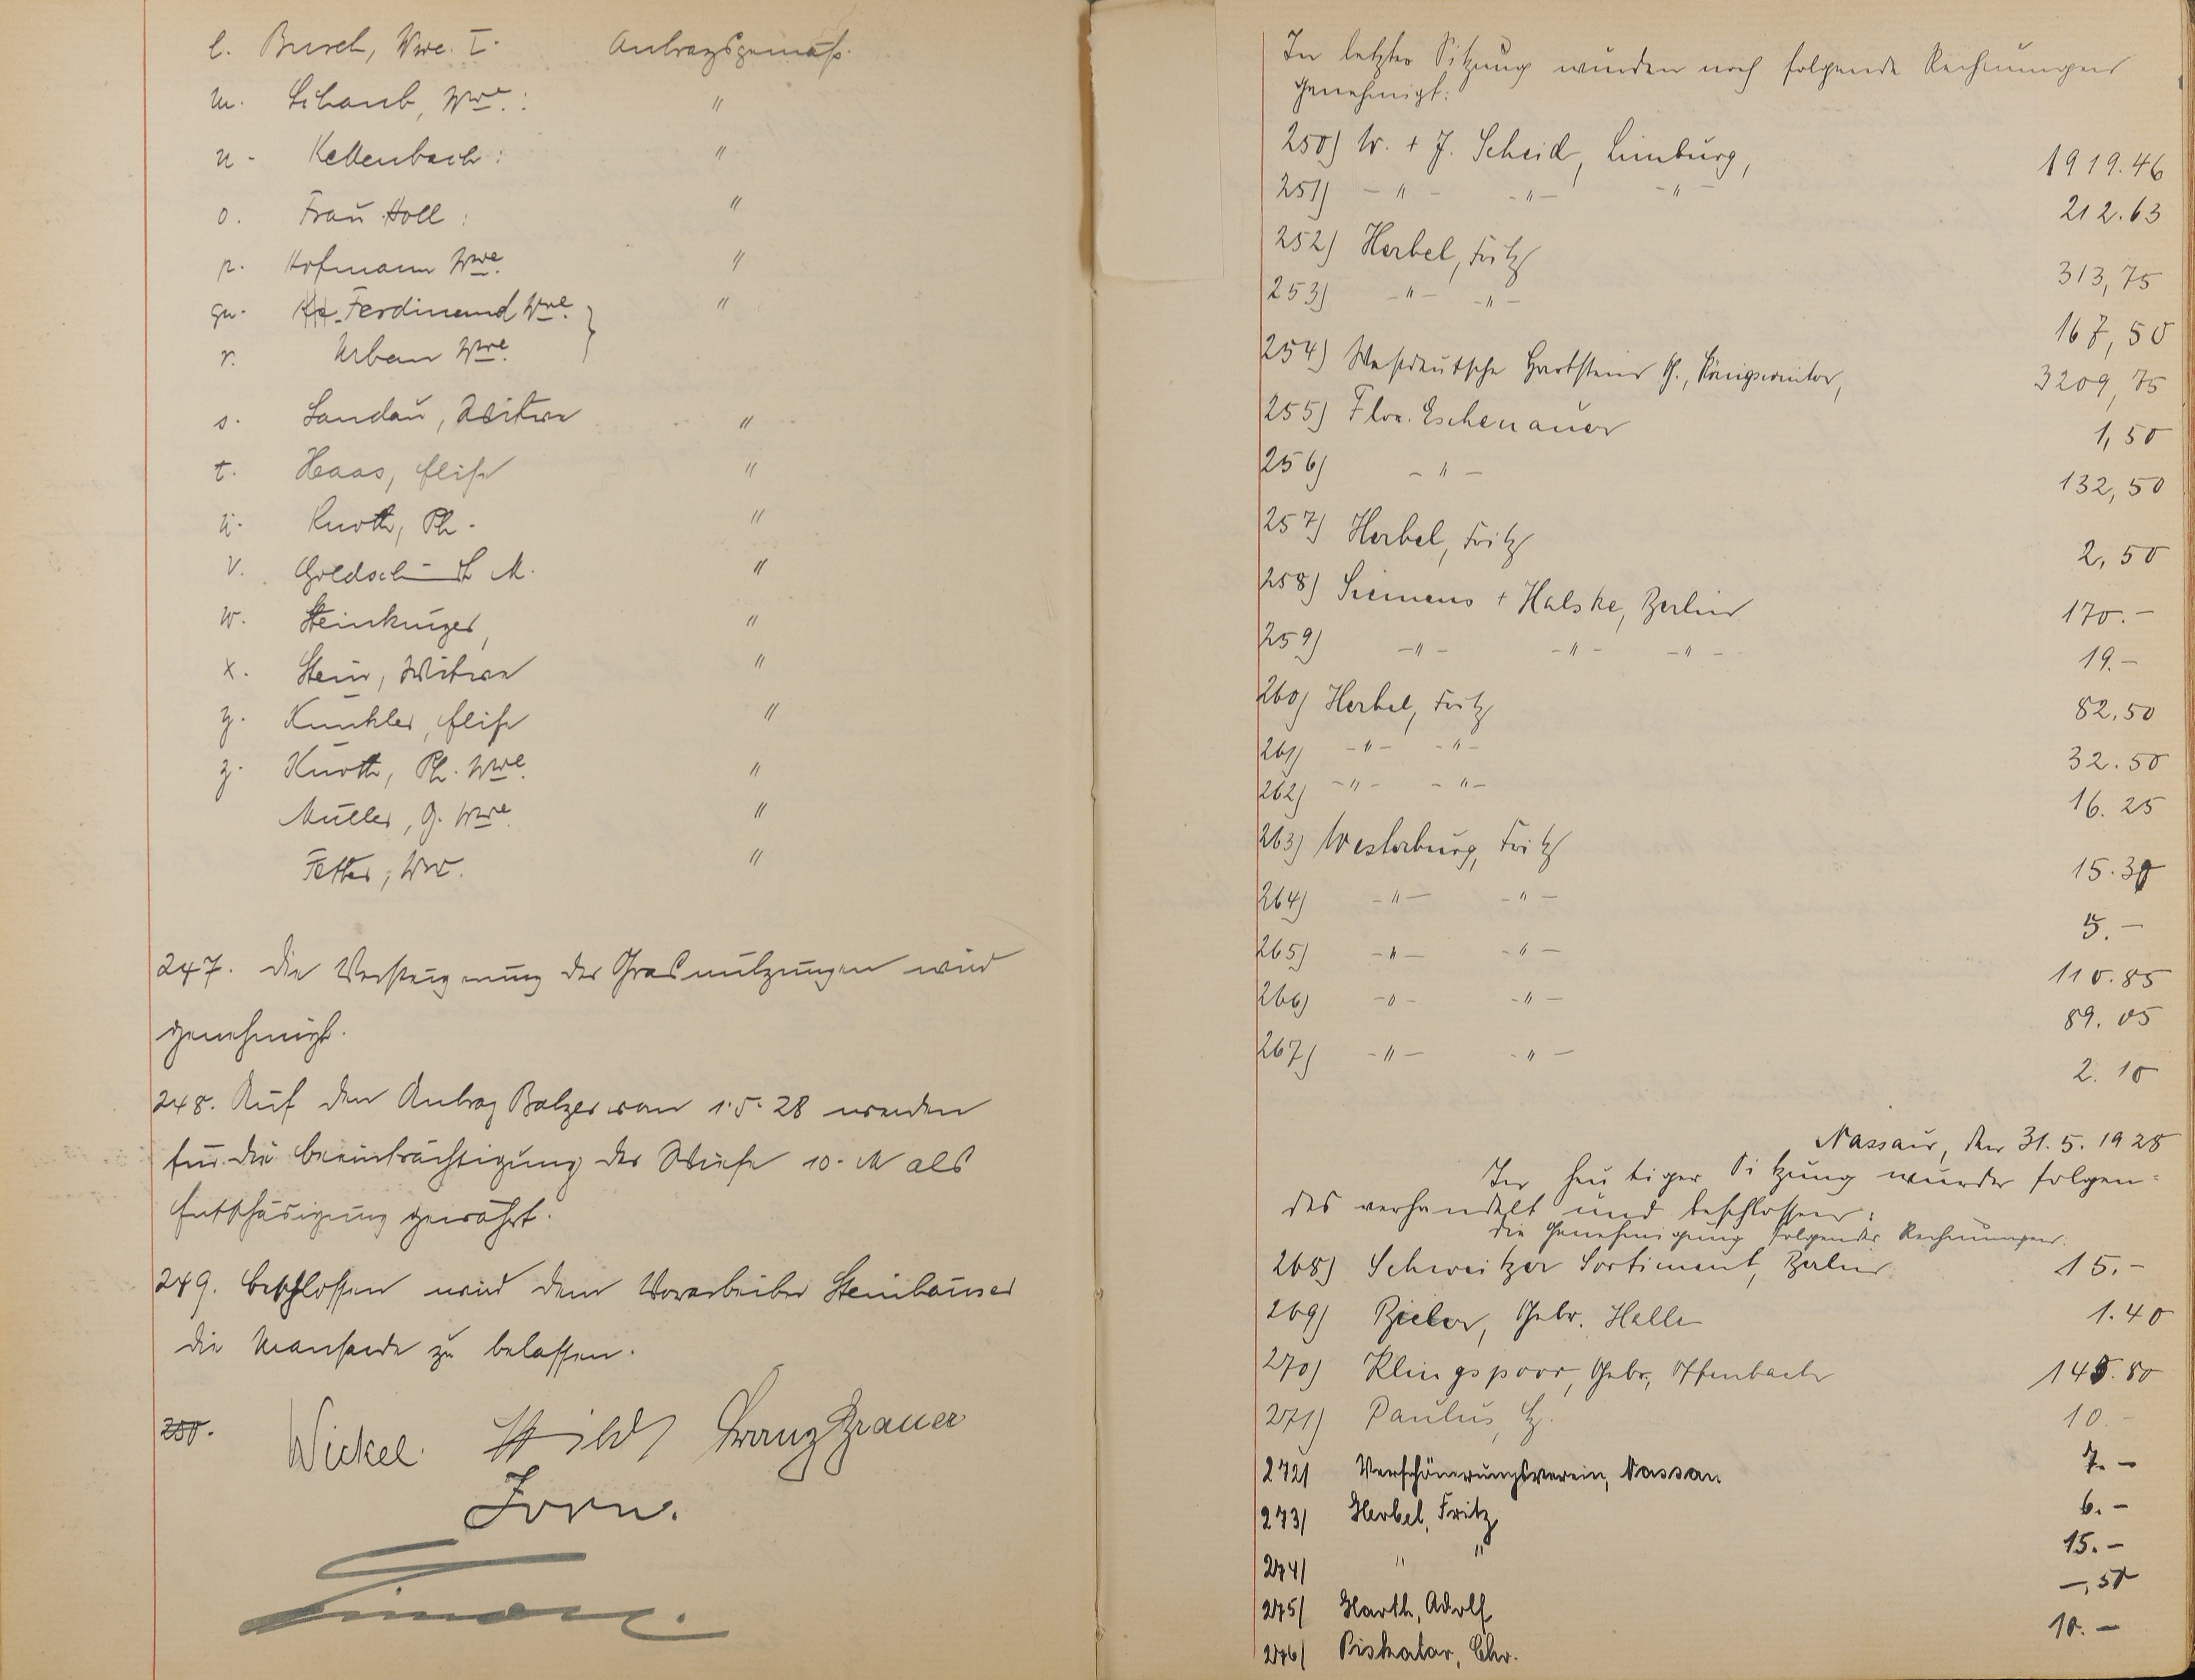 l. Busch, Wwe. I. Antragsgemäß.
m. Schaub, Wwe.: "
n. Kettenbach: "
o. Frau Holl: "
p. Hofmann Wwe. "
qu. Ferdinand Wwe. } "
r. Urban Wwe.
s. Landau, Witwe "
t. Haas, Elise "
u. Knoth, Ph. "
v. Goldschmidt M. "
w. Steinkrüger, "
x. Stein, Witwe "
y. Kunkler, Elise "
z. Knoth, Ph. Wwe. "
Müller, G. Wwe. "
Fetter, Ww. "
247. Die Versteigerung der Grasnutzungen wird
genehmigt.
248. Auf den Antrag Balzer vom 1.5.28 werden
für die Beeinträchtigung der Wiese 10.- M als
Entschädigung gewährt.
249. Beschlossen wird dem Vorarbeiter Steinhäuser
die Mansarde zu belassen.
250.
Wickel. Franz Brauer
Zorn.
In letzter Sitzung wurden noch folgende Rechnungen
genehmigt:
250) W. + J. Scheid, Limburg, 1919.46
251) -"- -"- -"- 212.63
252) Herbel, Fritz 313,75
253) -"- -"- 167,50
254) Westdeutsche Hartstein G., Königswinter, 3209,75
255) Flor. Eschenauer 1,50
256) -"- 132,50
257) Herbel, Fritz 2,50
258) Siemens + Halske, Berlin 170.-
259) -"- -"- -"- 19.-
260) Herbel, Fritz 82.50
261) -"- -"- 32.50
262) -"- -"- 16.25
263) Westerburg, Fritz 15.30
264) -"- -"- 5.-
265) -"- -"- 110.85
266) -"- -"- 89.05
267) -"- -"- 2.10
Nassau, den 31.5.1928
In heutiger Sitzung wurde folgen-
des verhandelt und beschlossen:
die Genehmigung folgender Rechnungen:
268) Schweitzer Sortiment, Berlin 15.-
269) Bieler, Gebr. Halle 1.40
270) Klingspoor, Gebr., Offenbach 145.80
271) Paulus, 10.-
272) Verschönerungsverein, Nassau 7.-
273) Herbel, Fritz 6.-
274) " " 15.-
275) Harth, Adolf -,50
276) Piskator, Chr. 10.-